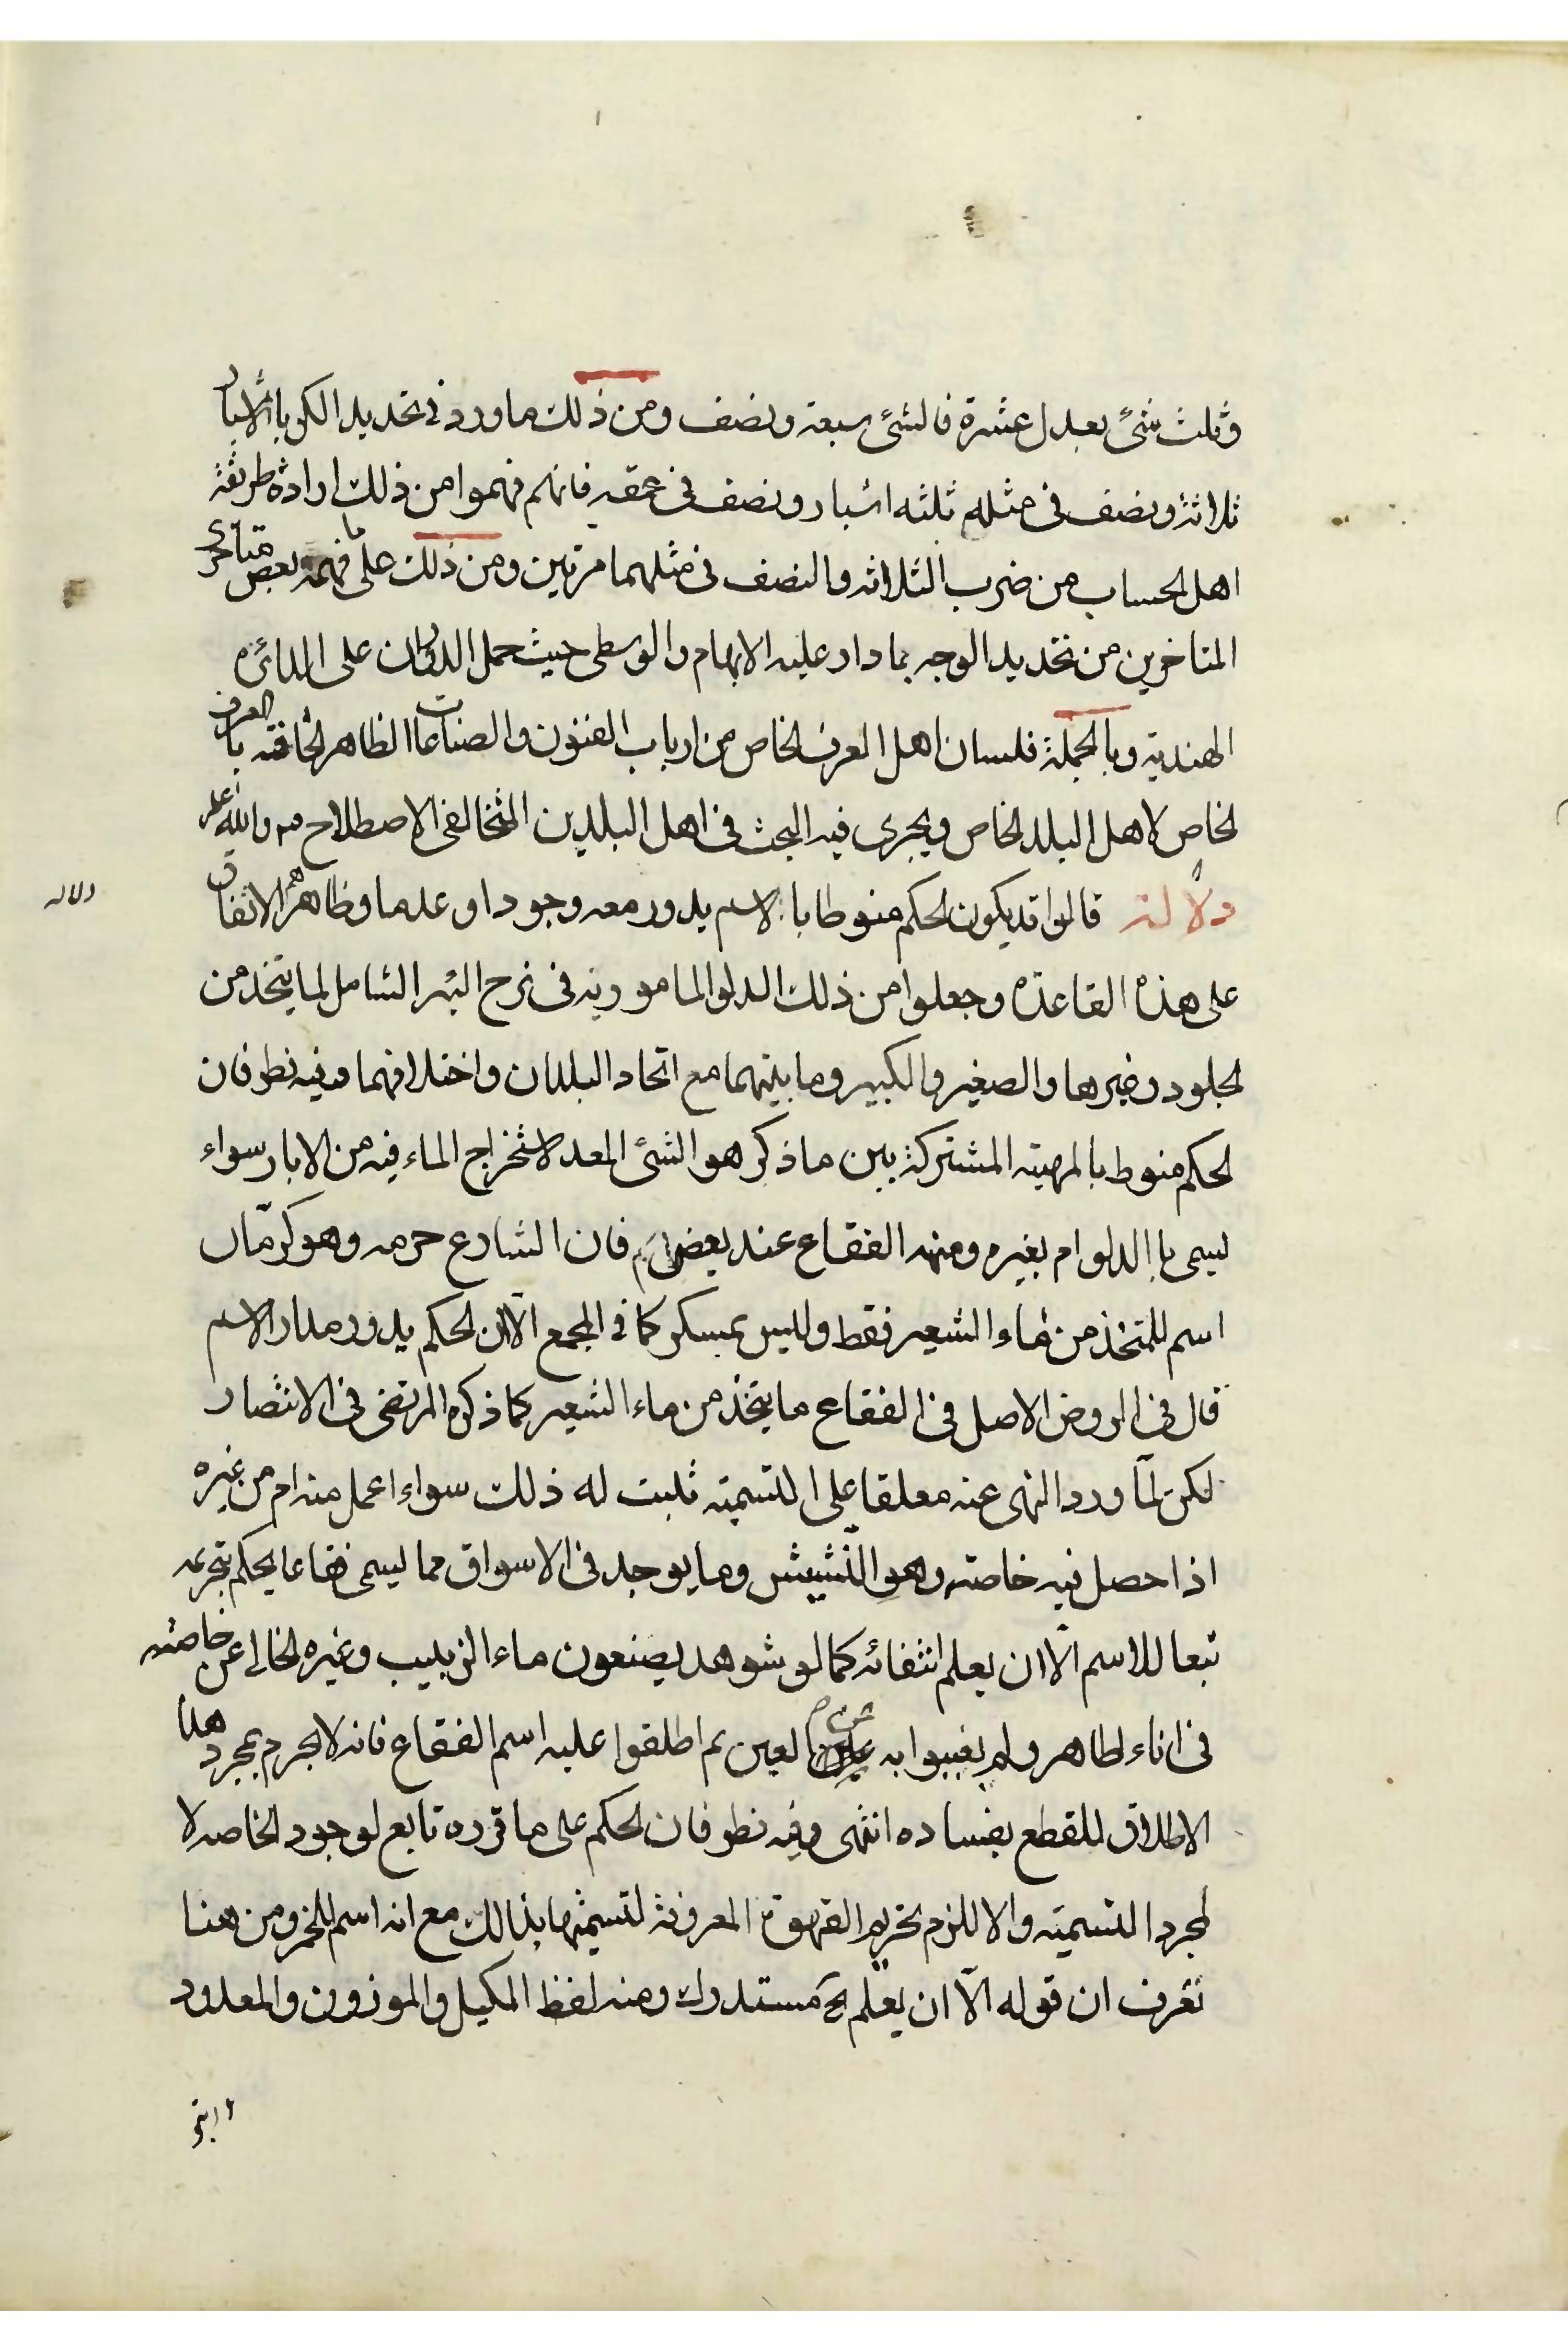 وثلث شئ يعدل عشرة فالشئ سبعة ونصف ومن ذلك ما ورد في تحديد الكر بالاشبار
ثلاثة ونصف في مثله ثلثه اشبار ونصف في عمقه فانهم فهموا من ذلك ارادة طريقة
اهل الحساب من ضرب الثلاثه والنصف في مثلهما مرتين ومن ذلك على ما فهمه بعض متاخرى
المتاخرين من تحديد الوجه بما دار عليه الابهام والوسطى حيث حمل الدوران على الدائره
الهندية وبالجملة فلسان اهل العرف الخاص من ارباب الفنون والصناعات الظاهر لحاقته بالعرف
الخاص لاهل البلد الخاص ويجرى فيه البحث في اهل البلدين المتخالفى الاصطلاح والله اعلم
دلالة قالوا قد يكون الحكم منوطا بالاسم يدور معه وجودا وعدما وظاهرهم الاتفاق
دلاله
على هذه القاعدة وجعلوا من ذلك الدلو المامور به في نزح البئر الشامل لما يتخذ من
الجلود وغيرها والصغير والكبير وما بينهما مع اتحاد البلدان واختلافهما وفيه نظر فان
الحكم منوط بالمهية المشتركة بين ما ذكر هو الشئ المعد لاستخراج الماء فيه من الابار سواء
ليسمى بالدلو ام بغيره ومنه الفقاع عند بعضهم فان الشارع حرمه وهو كرمّان
اسم للمتخذ من ماء الشعير فقط وليس بمسكر كما في المجمع الّا ان الحكم يدور مدار الاسم
قال في الروض الاصل في الفقاع ما يتخذ من ماء الشعير كما ذكره المرتضى في الانتصار
لكن لمّا ورد النهى عنه معلقا على التسمية ثبت له ذلك سواء اعمل منه ام من غيره
اذا حصل فيه خاصته وهو النشيش وما يوجد في الاسواق مما ليسمى فقاعا يحكم بتحريمه
تبعا للاسم الّا ان يعلم انتفائه كما لو شوهد يصنعون ماء الزبيب وغيره الخالى عن خاصته
في اناء لطاهر ولم يغيبوا به عن العين ثم اطلقوا عليه اسم الفقاع فانه لا يحرم بمجرد هذا
الاطلاق للقطع بفساده انتهى وفيه نظر فان الحكم على ما قرره تابع لوجود الخاصه لا
لمجرد التسمية والا للزم تحريم القهوة المعروفة لتسميتها بذالك مع انه اسم للخمر ومن هنا
تعرف ان قوله الّا ان يعلم الخ مستدرك ومنه لفظ المكيل والموزون والمعدود